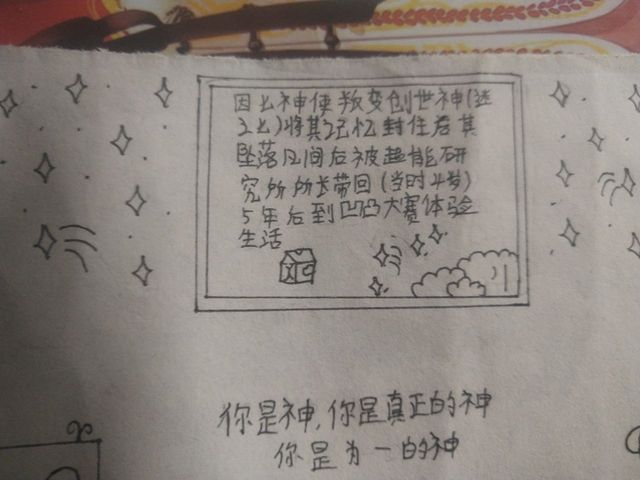 因七神使叛变创世神(迷
之七)将其记忆封住君其
坠落凡间后被超能研
究所所长带回(当时4岁)
5年后到凹凸大赛体验
生活
你是神,你是真正的神
你是为一的神